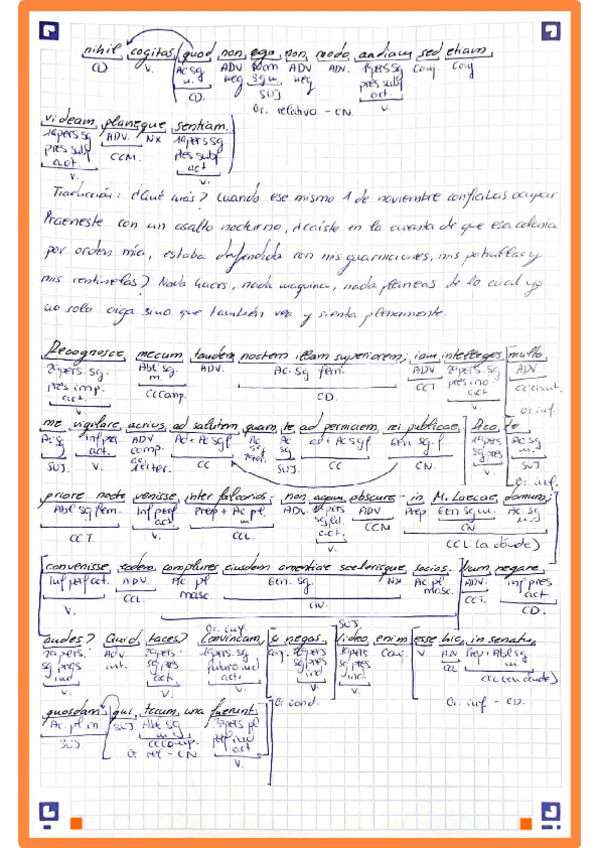 nihil cogitas quod non ego non modo audiam sed etiam
CD V. Ac sg n. ADV neg Nom sg m. ADV neg ADV. 1ª pers sg pres subj act. Conj Conj
CD. SUJ V.
Or. relativo - CN.
videam, planeque sentiam.
1ª pers sg pres subj act. ADV. NX 1ª pers sg pres subj act
V. CCM. V.
Traducción: ¿Qué más? Cuando ese mismo 1 de noviembre confiabas ocupar
Praeneste con un asalto nocturno, ¿caíste en la cuenta de que esa colonia
por orden mía, estaba defendida con mis guarniciones, mis patrullas y
mis centinelas? Nada haces, nada maquinas, nada planeas de lo cual yo
no solo oiga sino que también vea y sienta plenamente.
Recognosce mecum tandem noctem illam superiorem; iam intelleges multo
2ª pers. sg. pres imp. act Abl sg m. ADV. Ac. sg fem. ADV 2ª pers. sg. act ADV
V. CCComp. CD. CCT. V.
me vigilare acrius ad salutem quam te ad perniciem rei publicae. Dico te
Ac sg Inf pres act. ADV comp. Ad + Ac sg f Ac sg ad + Ac sg f Gen sg. f 1ª pers sg pres Ac sg m.
SUJ. V. CC SUJ. CC CN. V. SUJ.
Or. inf.
priore nocte venisse inter falcarios - non agam obscure - in M. Laecae domum;
Abl sg fem. Inf perf act. Prep + Ac pl m ADV. ADV Prep Gen sg m. Ac sg
CCT. V. CCL. V. CCM CN
CCL (a dónde)
convenisse eodem complures eiusdem amentiae scelerisque socios. Num negare
Inf perf act. ADV. Ac pl masc Gen. sg. NX Ac pl masc. ADV. inf pres act
V. CCL. CN. CCT. CD.
Or. inf. SUJ.
audes? Quid taces? Convincam, si negas. Video enim esse hic in senatu
2ª pers. sg pres ind ADV int. 2ª pers. sg pres ind 1ª pers. sg futuro ind act. Conj. 2ª pers sg pres ind 1ª pers sg pres ind. Conj. V Prep + Abl sg m
V. V. V. V. V. CCL (en donde)
Or cond. Or. inf - CD.
quosdam qui tecum una fuerunt.
Ac. pl m SUJ Abl sg m 3ª pers pl perf ind act
SUJ CCComp. V.
Or rel - CN